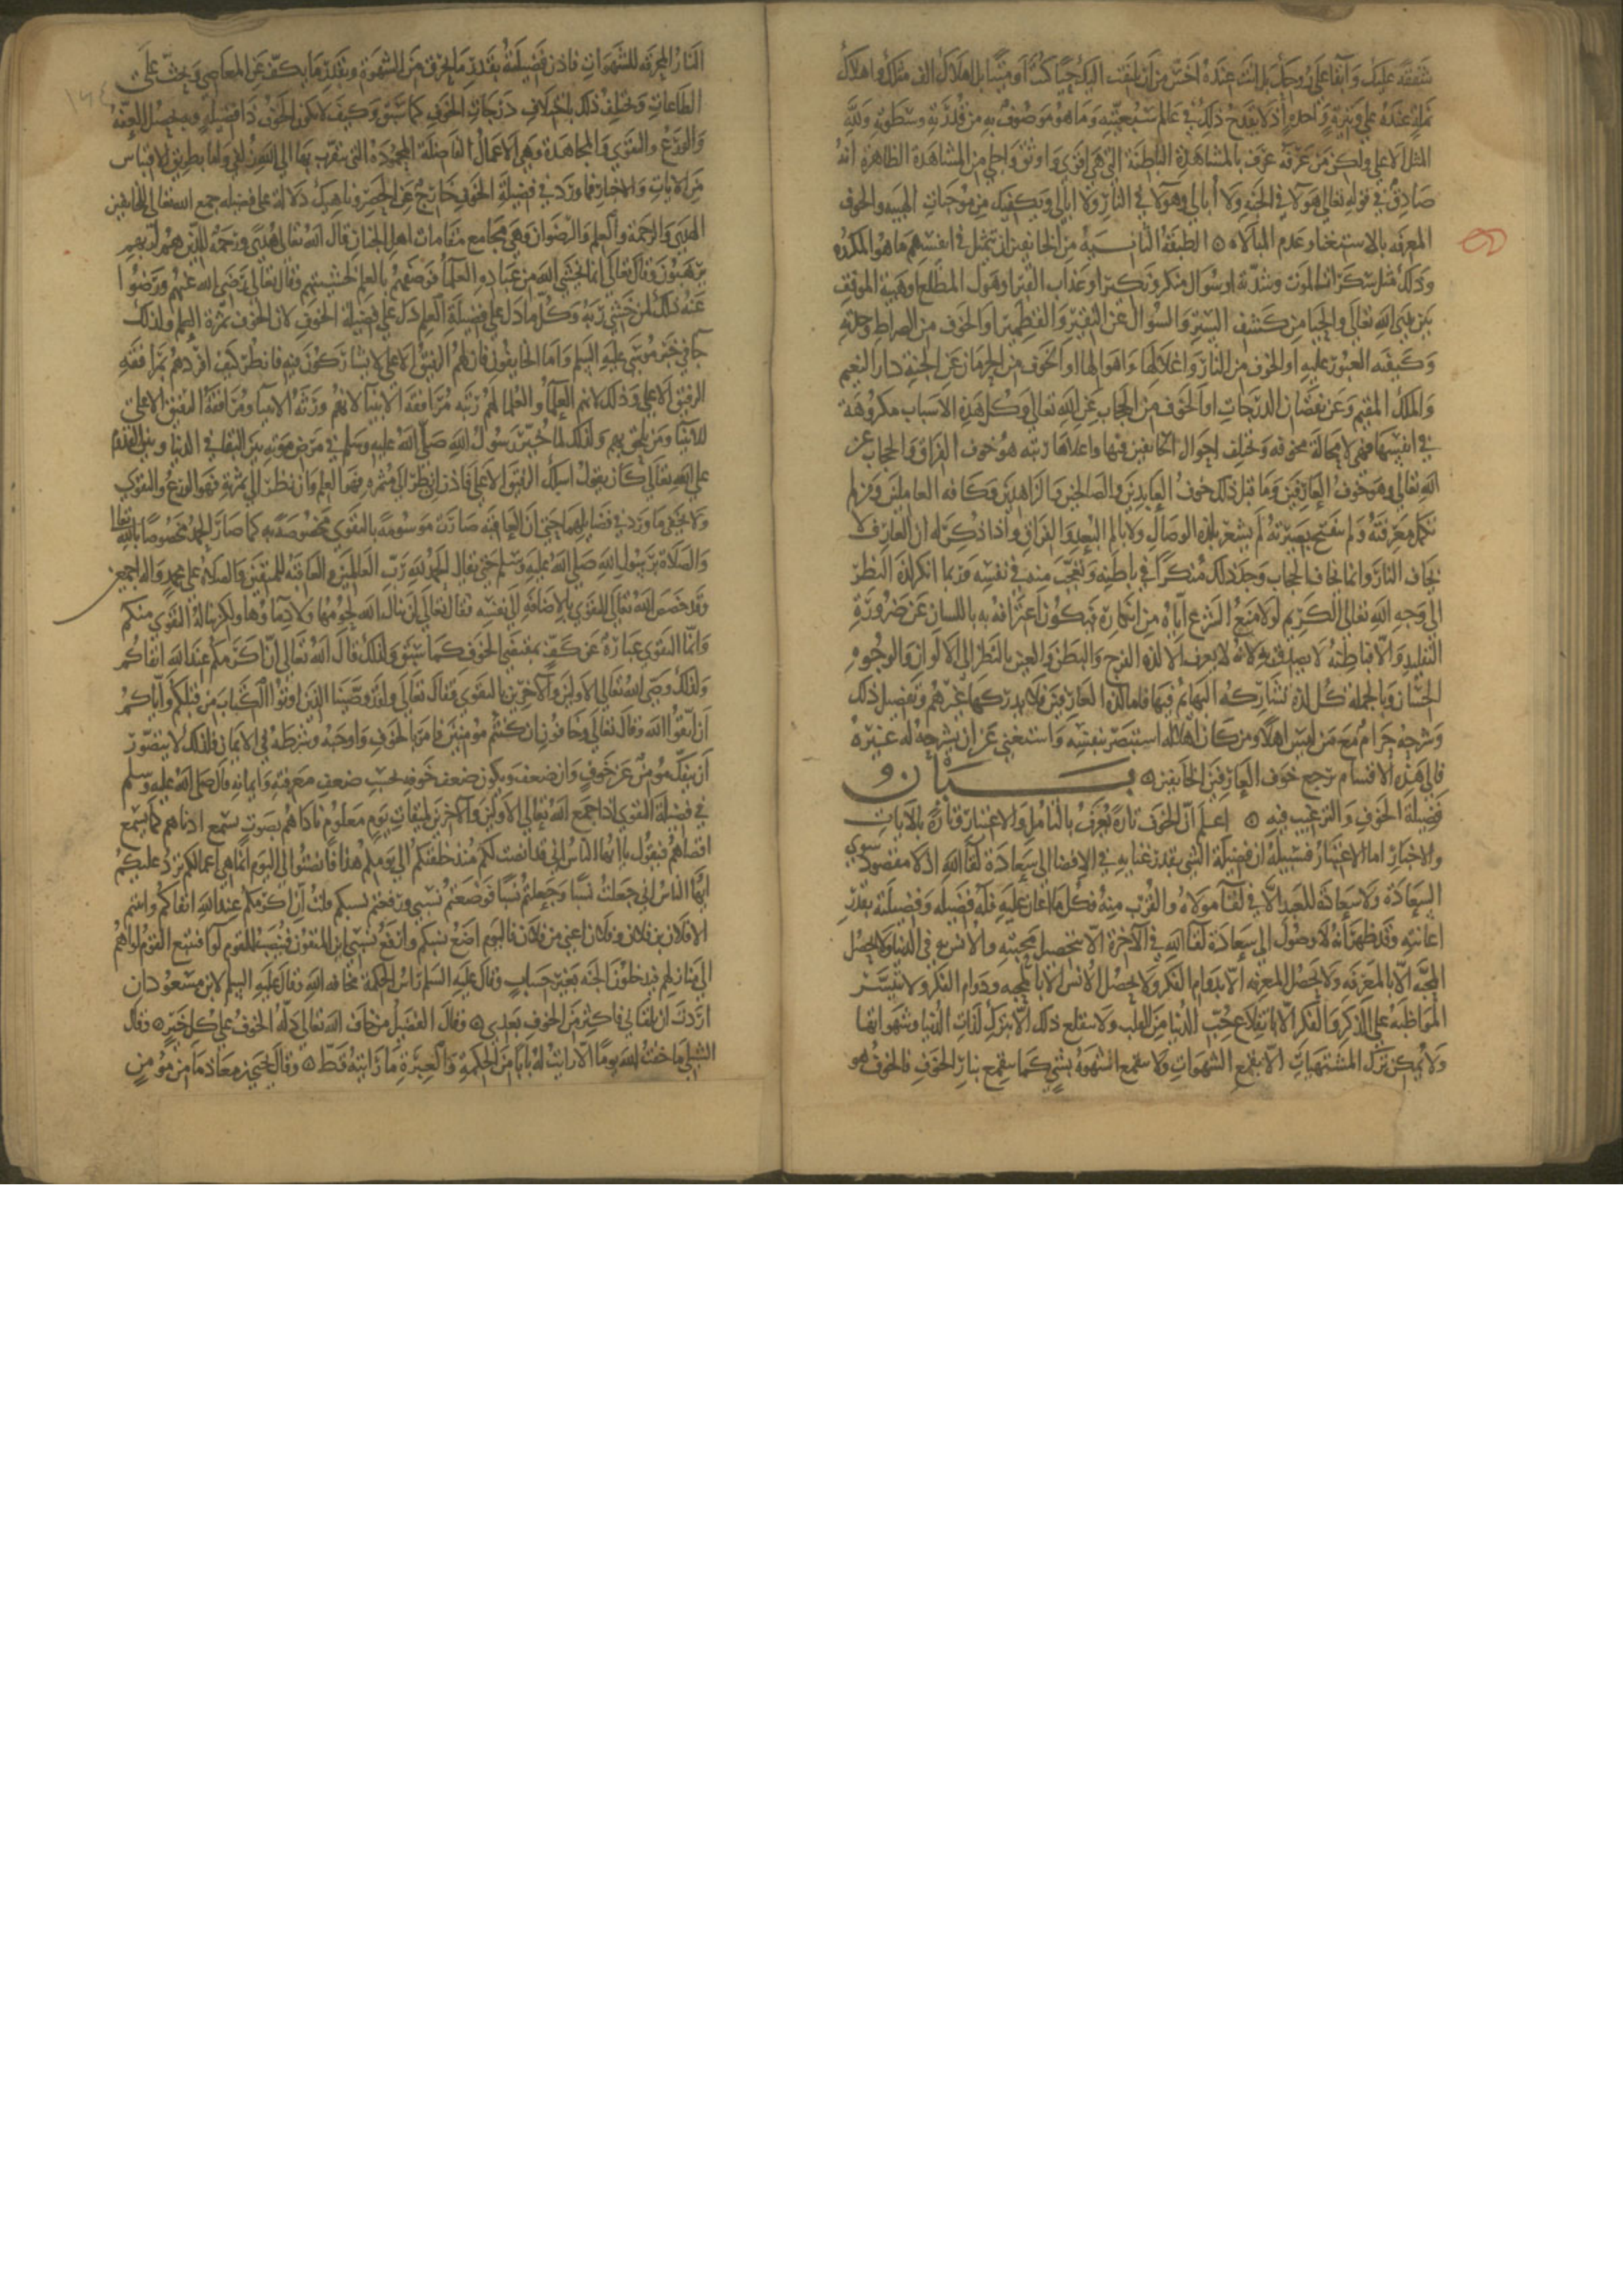 شفقة عليك وابقا على روحك بل انت عنده اخس من ان يلتفت اليك حيا كنت او ميتا بل اهلاك الف مثلك واهلاك
نملة عنده على وتيرة واحدة اذ لا يقدح ذلك في عالم سبعيته وما هو موصوف به من قدرته وسطوته ولله
المثل الاعلى ولكن من عرفه عرف بالمشاهدة الباطنة التي هي اقوى واوثق واجلى من المشاهدة الظاهرة انه
صادق في قوله تعالى هولا في الجنة ولا ابالي وهولا في النار ولا ابالي ويكفيك من موجبات الهيبه والخوف
المعرفه بالاستغنا وعدم المبالاه الطبقة الثانية من الخايفين ان يتمثل في انفسهم ما هو المكروه
وذلك مثل سكرات الموت وشدته او سوال منكر ونكير او عذاب القبر او هول المطلع او هيبة الموقف
بين يدي الله تعالى والحيا من كشف الستر والسوال عن النقير والقطمير او الخوف من الصراط وحدته
وكيفيه العبور عليه او الخوف من النار واغلالها واهوالها او الخوف من الحرمان عن الجنة دار النعيم
والملك المقيم وعن نقصان الدرجات او الخوف من الحجاب عن الله تعالى وكل هذه الاسباب مكروهة
في انفسها فهي لا محالة مخوفه وتختلف احوال الخايفين فيها واعلاها رتبه هو خوف الفراق والحجاب عن
الله تعالى وهو خوف العارفين وما قبل ذلك خوف العابدين والصالحين والزاهدين وكافه العاملين ومن لم
تكمل معرفته ولم تنفتح بصيرته لم يشعر بلذه الوصال ولا بالم البعد والفراق واذا ذكر له ان العارف لا
يخاف النار وانما يخاف الحجاب وجد ذلك منكرا في باطنه وتعجب منه في نفسه وربما انكر لذة النظر
الى وجه الله تعالى الكريم لولا منع الشرع اياه من انكاره فيكون اعترافه به باللسان عن ضرورة
التقليد والا فباطنه لا يصدق به لانه لا يعرف الا لذة الفرج والبطن والعين بالنظر الى الالوان والوجوه
الحسان وبالجمله كل لذة تشاركه البهايم فيها فاما لذة العارفين فلا يدركها غيرهم وتفصيل ذلك
وشرحه حرام مع من ليس اهلا ومن كان اهلا له استبصر بنفسه واستغنى عن ان يشرحه له غيره
فالى هذه الاقسام يرجع خوف العارفين الخايفين بيان
فضيلة الخوف والترغيب فيه اعلم ان الخوف تارة يعرف بالتامل والاعتبار وتارة بالايات
والاخبار اما الاعتبار فسبيله ان فضيلة الشي بقدر غنايه في الافضا الى سعادة لقا الله اذ لا مقصود سوى
السعادة ولا سعادة للعبد الا في لقا مولاه والقرب منه فكل ما اعان عليه فله فضيله وفضيلته بقدر
اعانته وقد ظهر انه لا وصول الى سعادة لقا الله في الاخرة الا بتحصيل محبته والانس به في الدنيا ولا تحصل
المحبه الا بالمعرفه ولا تحصل المعرفه الا بدوام الفكر ولا يحصل الانس الا بالمحبه ودوام الذكر ولا تتيسر
المواظبه على الذكر والفكر الا بانقلاع حب الدنيا من القلب ولا ينقلع ذلك الا بترك لذات الدنيا وشهواتها
ولا يمكن ترك المشتهيات الا بقمع الشهوات ولا تنقمع الشهوة بشي كما تنقمع بنار الخوف فالخوف هو
النار المحرقه للشهوات فاذن فضيلته بقدر ما يحرق من الشهوة وبقدر ما يكف عن المعاصي ويحث على
الطاعات ويختلف ذلك باختلاف درجات الخوف كما سبق وكيف لا يكون الخوف ذا فضيلة وبه يحصل العفه
والورع والتقوى والمجاهدة وهي الاعمال الفاضلة المحمودة التي يتقرب بها الى الله زلفى واما بطريق الاقتباس
من الايات والاخبار فما ورد في فضيلة الخوف خارج عن الحصر وناهيك دلالة على فضيله جمع الله تعالى للخايفين
الهدى والرحمة والعلم والرضوان وهي مجامع مقامات اهل الجنان قال الله تعالى هدى ورحمة للذين هم لربهم
يرهبون وقال تعالى انما يخشى الله من عباده العلما فوصفهم بالعلم لخشيتهم وقال تعالى رضي الله عنهم ورضوا
عنه ذلك لمن خشي ربه وكل ما دل على فضيلة العلم دل على فضيلة الخوف لان الخوف ثمرة العلم ولذلك
جا في خبر موسى عليه السلم واما الخايفون فان لهم الرفيق الاعلى لا يشاركون فيه فانظر كيف افردهم بمرافقه
الرفيق الاعلى وذلك لانهم العلما والعلما لهم رتبه مرافقة الانبيا لانهم ورثه الانبيا ومرافقة الرفيق الاعلى
للانبيا ومن يلحق بهم ولذلك لما خير رسول الله صلى الله عليه وسلم في مرض موته بين البقا في الدنيا وبين القدوم
على الله تعالى كان يقول اسلك الرفيق الاعلى فاذن ان نظر الى مثمره فهو العلم وان نظر الى ثمرته فهو الورع والتقوى
ولا يخفى ما ورد في فضايلهما حتى ان العاقبه صارت موسومة بالتقوى مخصوصه به كما صار الحمد مخصوصا بالله تعالى
والصلاة برسول الله صلى الله عليه وسلم حتى يقال الحمد لله رب العالمين والعاقبة للمتقين والصلاة على محمد واله اجمعين
وقد خصص الله تعالى التقوى بالاضافه الى نفسه فقال تعالى لن ينال الله لحومها ولا دماوها ولكن يناله التقوى منكم
وانما التقوى عبارة عن كف بمقتضى الخوف كما سبق ولذلك قال الله تعالى ان اكرمكم عند الله اتقاكم
ولذلك وصى الله تعالى الاولين والاخرين بالتقوى فقال تعالى ولقد وصينا الذين اوتوا الكتاب من قبلكم واياكم
ان اتقوا الله وقال تعالى وخافون ان كنتم مومنين فامر بالخوف واوجبه وشرطه في الايمان فلذلك لا يتصور
ان ينفك مومن عن خوف وان ضعف ويكون ضعف خوفه بحسب ضعف معرفته وايمانه وقال صلى الله عليه وسلم
في فضيلة التقوى اذا جمع الله تعالى الاولين والاخرين لميقات يوم معلوم ناداهم بصوت يسمع ادناهم كما يسمع
اقصاهم فيقول يا ايها الناس اني قد انصت لكم منذ خلقتكم الى يومكم هذا فانصتوا الي اليوم انما هي اعمالكم ترد عليكم
ايها الناس اني جعلت نسبا وجعلتم نسبا فوضعتم نسبي ورفعتم نسبكم قلت ان اكرمكم عند الله اتقاكم وابيتم
الا فلان بن فلان وفلان اغنى من فلان فاليوم اضع نسبكم وارفع نسبي اين المتقون فينصب للقوم لوا فيتبع القوم لواهم
الى منازلهم فيدخلون الجنه بغير حساب وقال عليه السلم راس الحكمة مخافه الله وقال عليه السلم لابن مسعود ان
اردت ان تلقاني فاكثر من الخوف بعدي وقال الفضيل من خاف الله تعالى دله الخوف على كل خير وقال
الشبلي ما خفت الله يوما الا رايت له بابا من الحكمة والعبرة ما رايته قط وقال يحيى بن معاذ ما من مومن